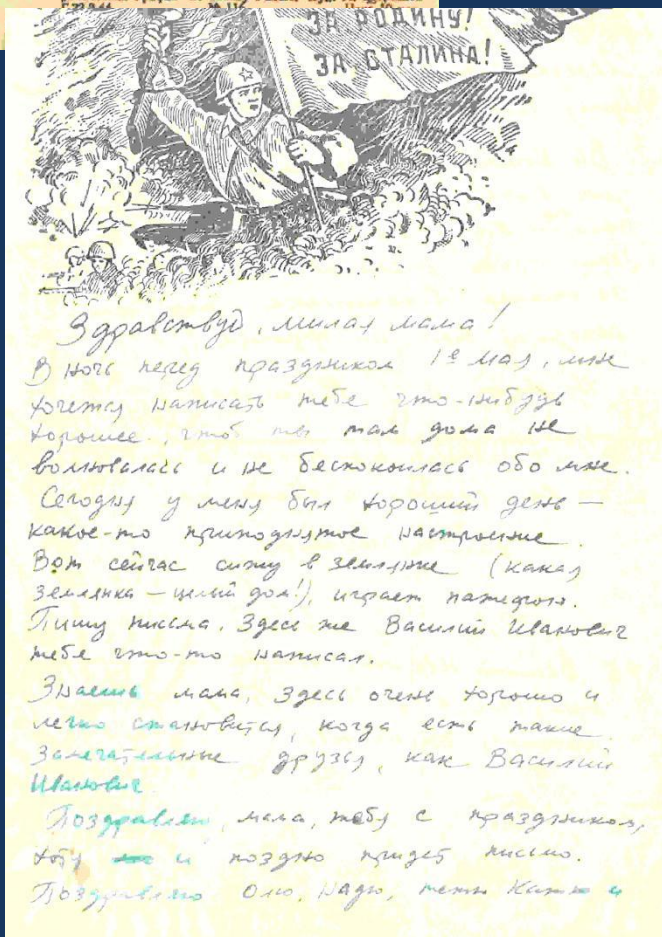 ЗА РОДИНУ!
ЗА СТАЛИНА!
Здравствуй, милая мама!
В ночь перед праздником 1е мая, мне
хочется написать тебе что-нибудь
хорошее, чтоб ты там дома не
волновалась и не беспокоилась обо мне.
Сегодня у меня был хороший день —
какое-то приподнятое настроение.
Вот сейчас сижу в землянке (какая
землянка — целый дом!), играет патефон.
Пишу письма. Здесь же Василий Иванович
тебе что-то написал.
Знаешь мама, здесь очень хорошо и
легко становится, когда есть такие
замечательные друзья, как Василий
Иванович
Поздравляю, мама, тебя с праздником,
хотя и поздно придет письмо.
Поздравляю Олю, Надю, тетю Катю и